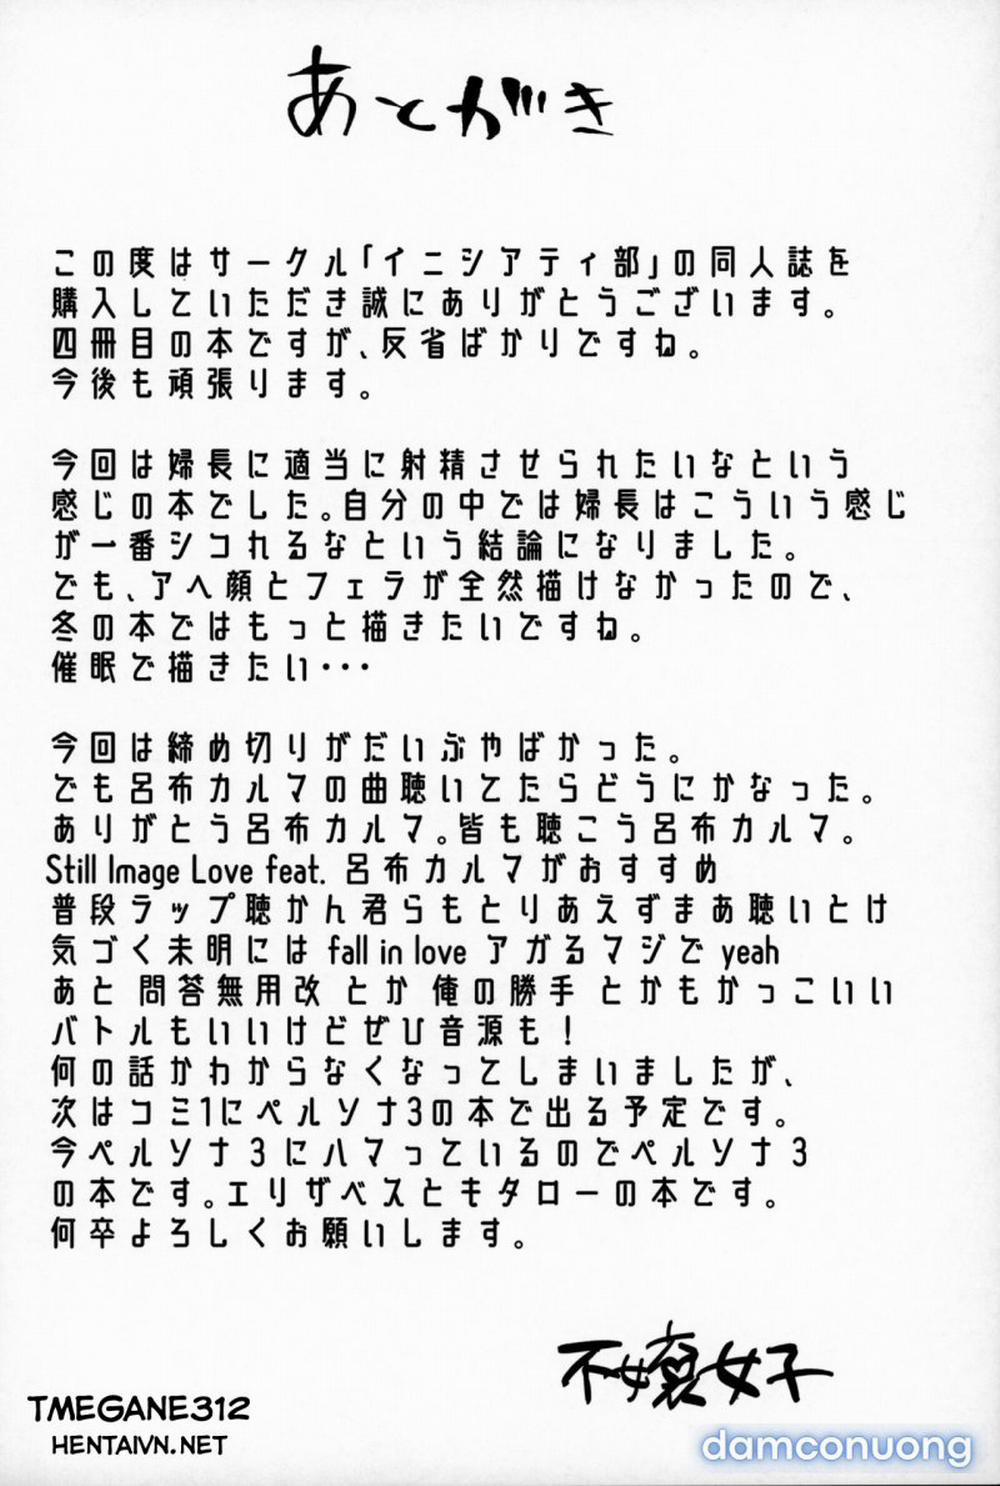 あとがき
この度はサークル「イニシアティ部」の同人誌を
購入していただき誠にありがとうございます。
四冊目の本ですが、反省ばかりですね。
今後も頑張ります。
今回は婦長に適当に射精させられたいなという
感じの本でした。自分の中では婦長はこういう感じ
が一番シコれるなという結論になりました。
でも、アヘ顔とフェラが全然描けなかったので、
冬の本ではもっと描きたいですね。
催眠で描きたい･･･
今回は締め切りがだいぶやばかった。
でも呂布カルマの曲聴いてたらどうにかなった。
ありがとう呂布カルマ。皆も聴こう呂布カルマ。
Still Image Love feat. 呂布カルマがおすすめ
普段ラップ聴かん君らもとりあえずまあ聴いとけ
気づく未明には fall in love アガるマジで yeah
あと 問答無用改 とか 俺の勝手 とかもかっこいい
バトルもいいけどぜひ音源も！
何の話かわからなくなってしまいましたが、
次はコミ1にペルソナ3の本で出る予定です。
今ペルソナ3にハマっているのでペルソナ3
の本です。エリザベスともタローの本です。
何卒よろしくお願いします。
不嬢女子
TMEGANE312
HENTAIVN.NET
damconuong